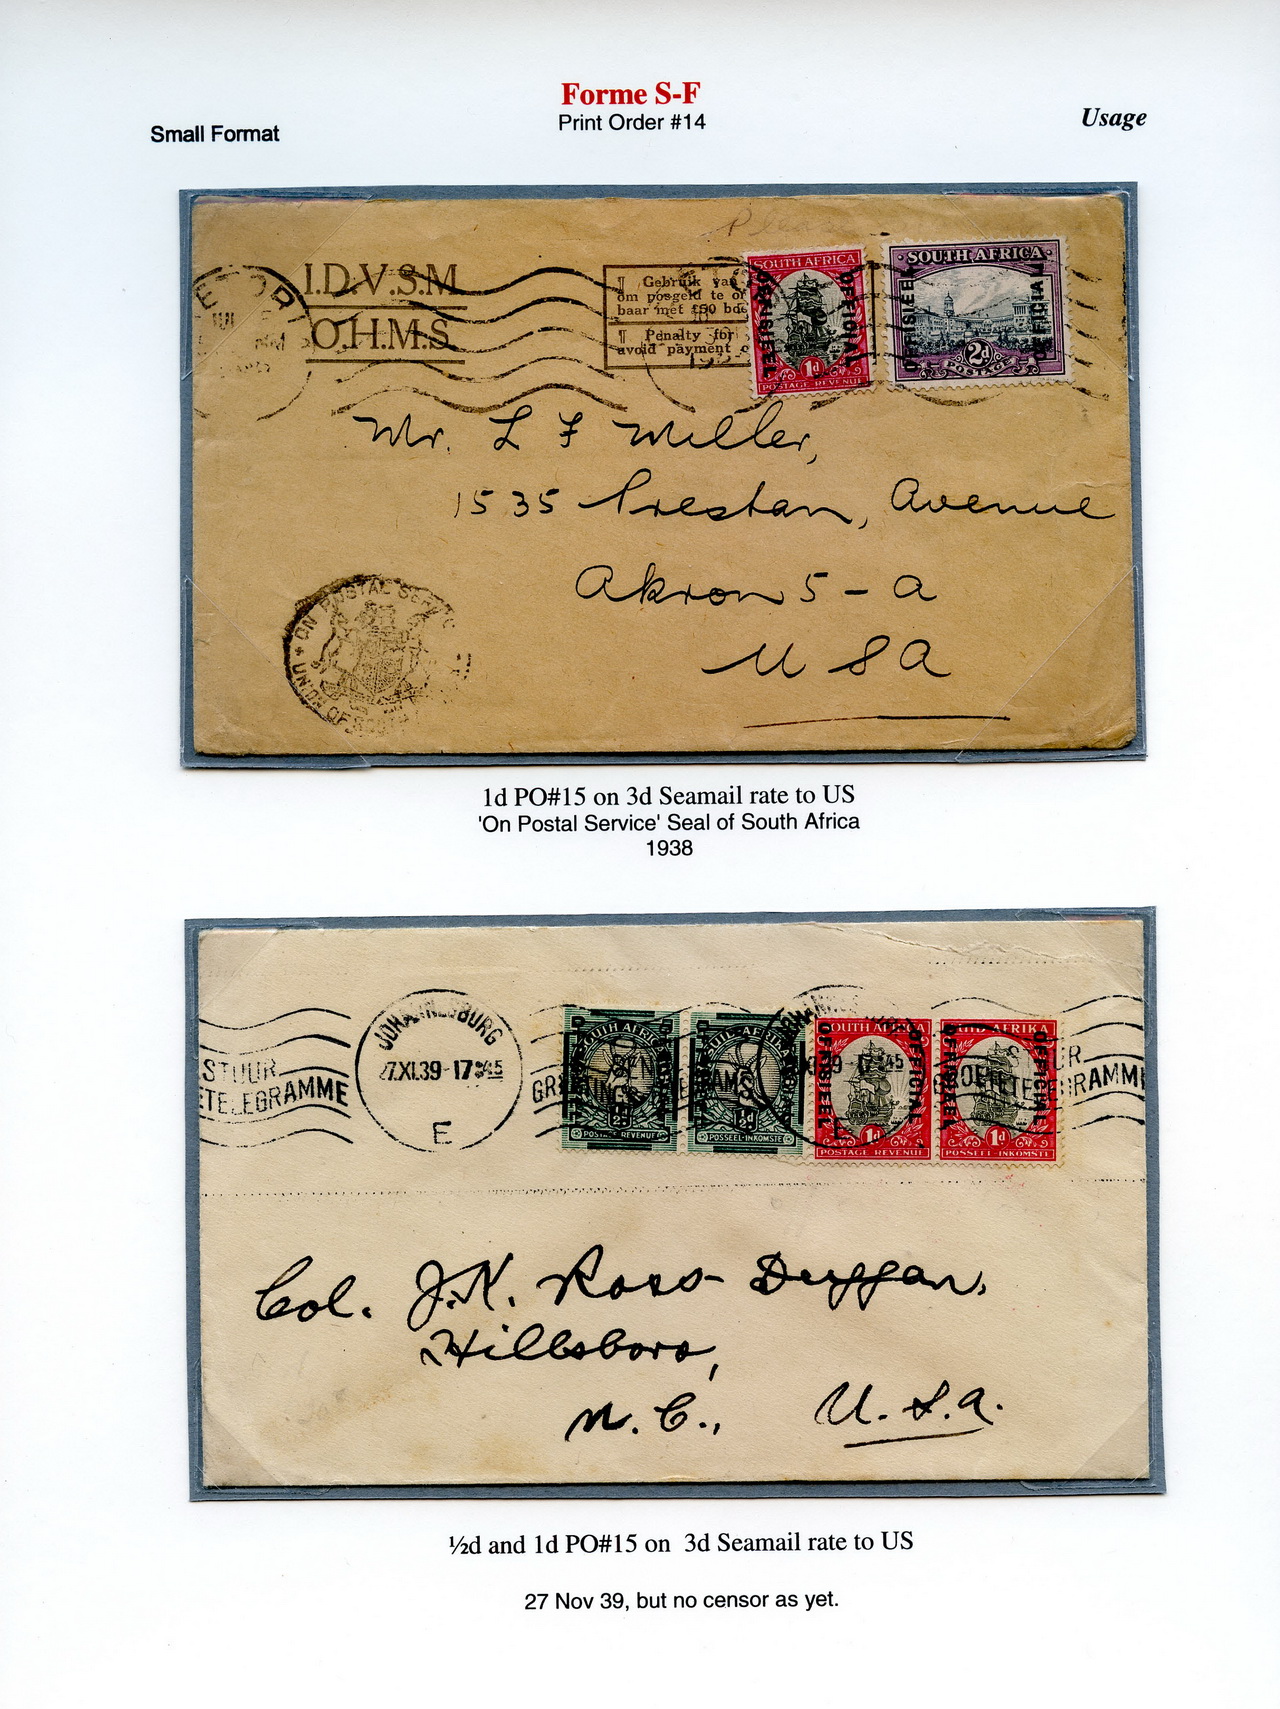 Forme S-F
Print Order #14
Small Format
Usage
I.D.V.S.M
O.H.M.S.
¶ Gebruik van
om posgeld te
baar met £50
¶ Penalty for
avoid payment
SOUTH AFRICA
OFFISIEEL
OFFICIAL
1d
POSTAGE REVENUE
SOUTH AFRICA
OFFISIEEL
OFFICIAL
2d
POSTAGE
Mr. L F Miller,
1535 Preston, Avenue
Akron 5 - A
U S A
ON POSTAL SERVICE
UNION OF SOUTH
1d PO#15 on 3d Seamail rate to US
'On Postal Service' Seal of South Africa
1938
JOHANNESBURG
27.XI.39-17 45
E
STUUR
GROETETELEGRAMME
SOUTH AFRICA
POSTAGE REVENUE
SUID-AFRIKA
½d
POSSEEL-INKOMSTE
SOUTH AFRICA
OFFISIEEL
OFFICIAL
1d
POSTAGE REVENUE
SUID AFRIKA
OFFISIEEL
OFFICIAL
1d
POSSEEL-INKOMSTE
Col. J.K. Ross-Duggan,
Hillsboro,
N.C., U.S.A.
½d and 1d PO#15 on 3d Seamail rate to US
27 Nov 39, but no censor as yet.